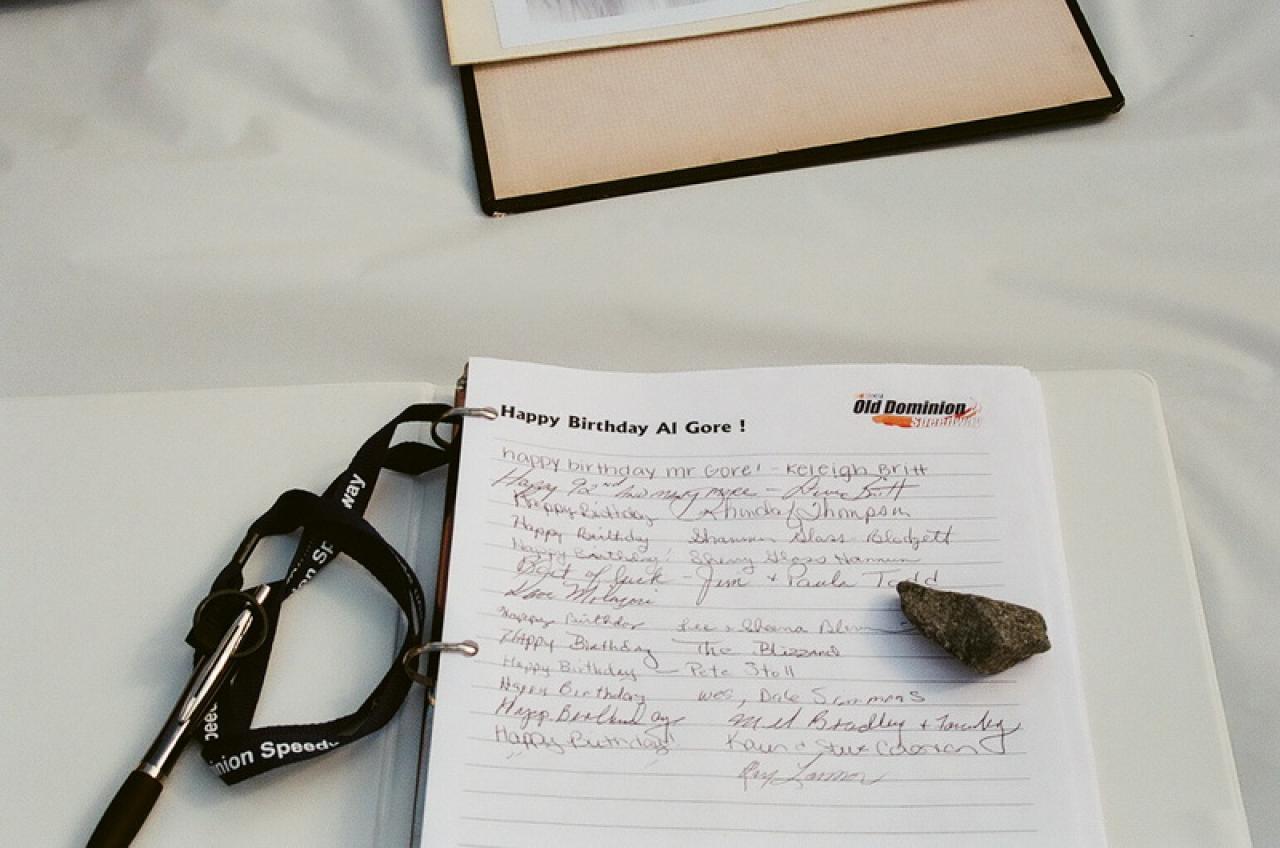 Happy Birthday Al Gore !
Old Dominion
Speedway
happy birthday mr Gore! - Keleigh Britt
Happy 92nd many more - Britt
Happy Birthday Rhonda Thompson
Happy Birthday Shannon Glass-Blodgett
Happy Birthday! Sherry Glass
Best of luck - Jim + Paula Todd
Dave
Happy Birthday Lee + Sheena
Happy Birthday The Blizzard
Happy Birthday - Pete Stoll
Happy Birthday Wes, Dale Simmons
Happy Bradley + Family
Happy Birthday! Karen + Steve
Ray
way
on Sp
peed
inion Speedw